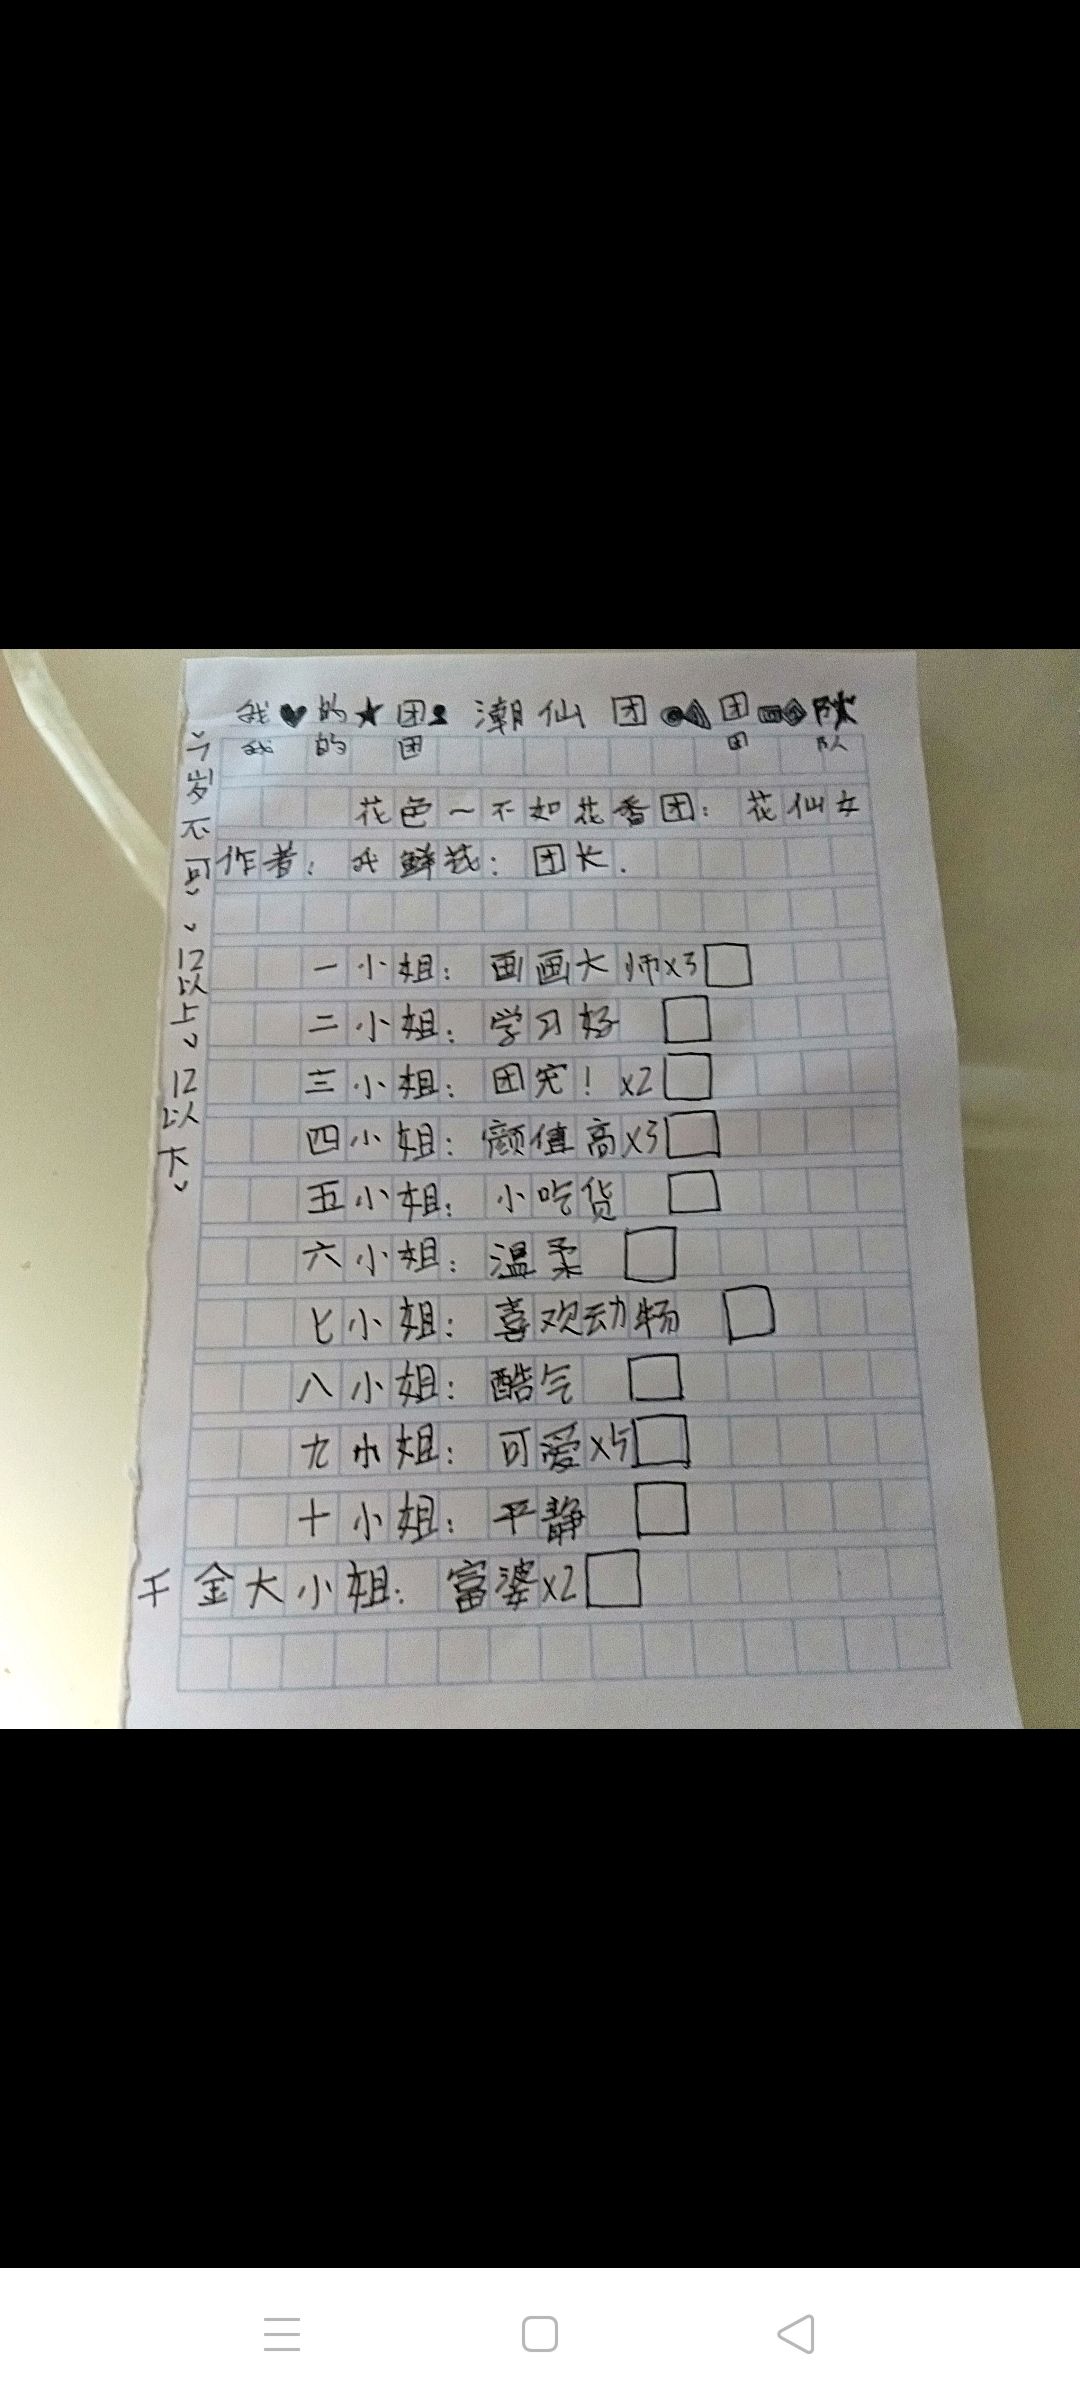 我♥的★团 潮仙团 团 队
我 的 团 团 队
花色一不如花香团：花仙女
作者： 团长.
一小姐：画画大师x3
二小姐：学习好
三小姐：团宠！x2
四小姐：颜值高x3
五小姐：小吃货
六小姐：温柔
七小姐：喜欢动物
八小姐：酷气
九小姐：可爱x5
十小姐：平静
千金大小姐：富婆x2
岁不可
12以上
12以下